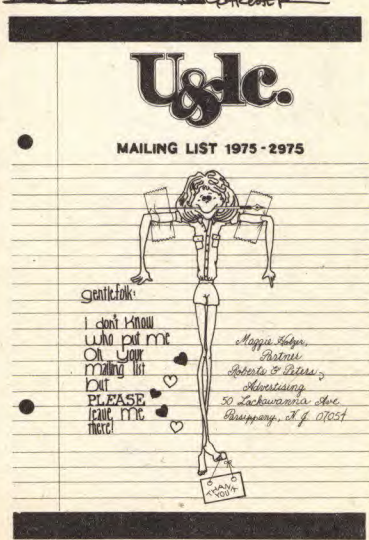 U&lc.
MAILING LIST 1975-2975
gentlefolk:
i don't know
who put me
on your
mailing list
but
PLEASE
leave me
there!
Maggie Holzer,
Partner
Roberts & Peters,
Advertising
50 Lackawanna Ave
Parsippany, N.J. 07054
THANK
YOU